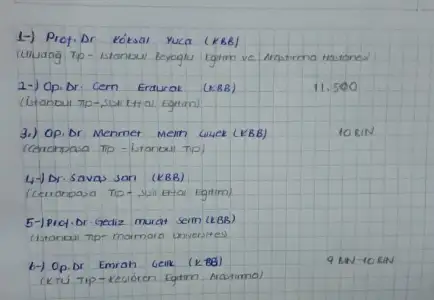 1-) Prof. Dr Köksal Yuca (KBB)
(Uludağ Tıp - İstanbul Beyoğlu Eğitim ve Araştırma Hastanesi
2-) Op. Dr. Cem Erdurak (KBB) 11.500
(İstanbul Tıp - Şişli Etfal Eğitim)
3.) Op. Dr Mehmet Metin (KBB) 10 BİN
(Cerrahpaşa Tıp - İstanbul Tıp)
4-) Dr. Savaş Sarı (KBB)
(Cerrahpaşa Tıp - Şişli Etfal Eğitim)
5-) Prof. Dr Gediz Murat Serin (KBB)
(İstanbul Tıp - Marmara Üniversitesi)
6-) Op. Dr Emrah Çelik (KBB) 9 BİN - 10 BİN
(KTÜ Tıp - Keçiören Eğitim Araştırma)